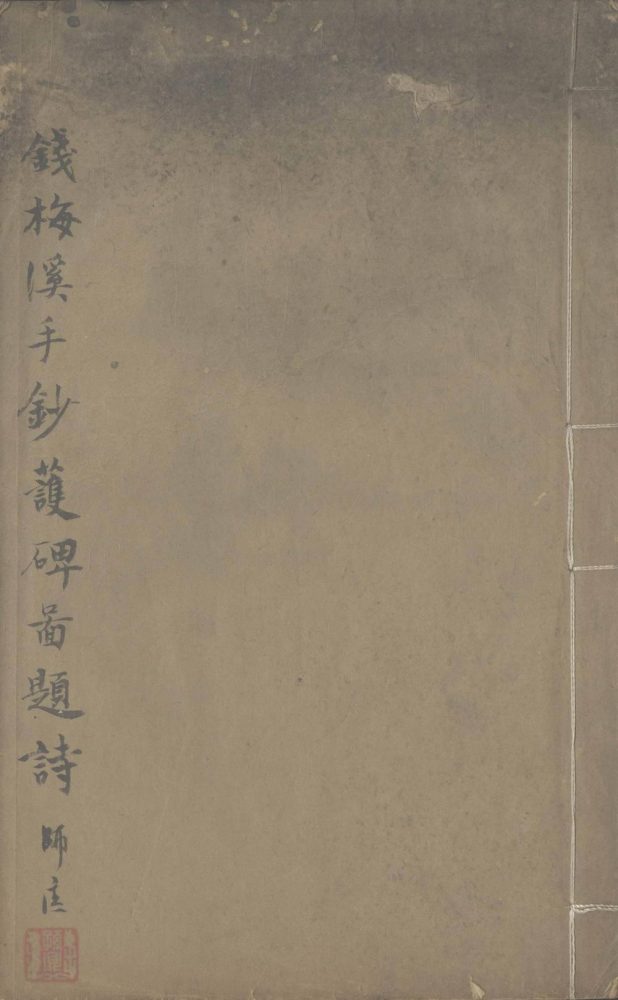 錢梅溪手鈔護碑啚題詩
師